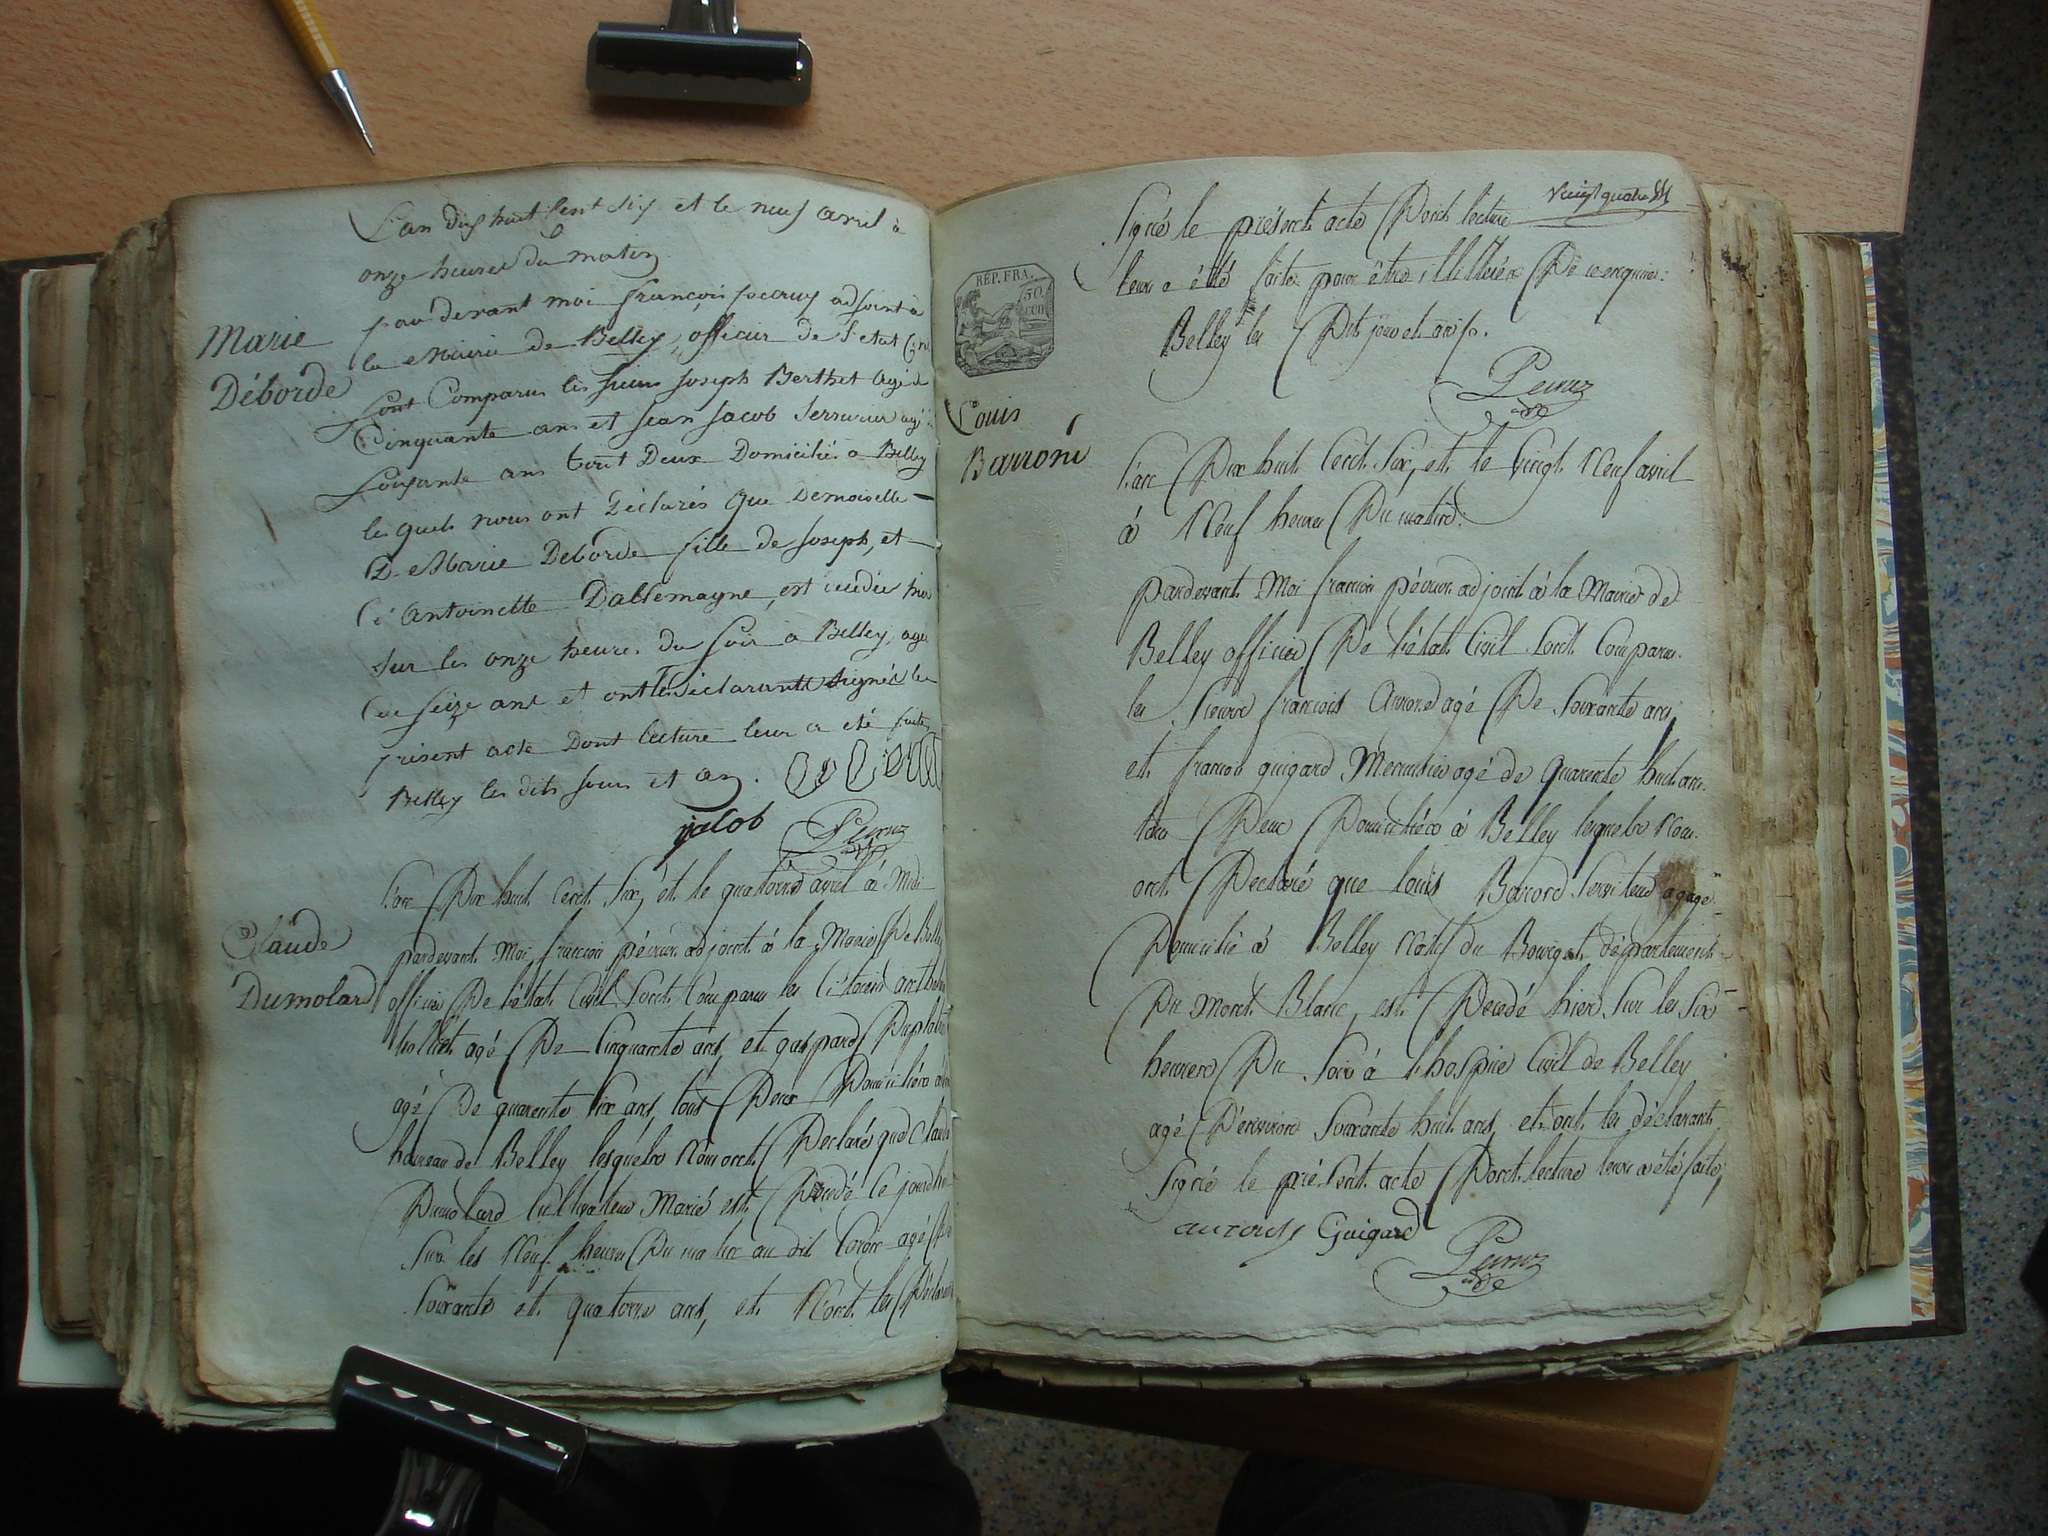 L'an dix huit cent six et le neuf avril à
onze heures du matin
par devant moi françois pecruz adjoint à
la Mairie de Belley, officier de l'etat Civil
Marie
Déborde
sont Comparus les sieurs Joseph Berthet agé de
Cinquante ans et jean jacob Serrurier agé
soixante ans tout Deux Domicilié a Belley
les quels nous ont Déclarés que Demoiselle
D. Marie Deborde fille de joseph, et
d'antoinette Dallemagne, est décédée hier
sur les onze heures du soir a Belley, agée
de seize ans et ont les déclarants signés le
présent acte Dont lecture leur a été faite
Belley les dits jour et an.
jacob
l'an Dix huit Cent Six, et le quatorze avril à Midi
Claude
Dumolard
pardevant Moi, françois pécruz adjoint à la Mairie De Belley
officier De l'état Civil Sont Comparus les Citoiens
agé De Cinquante ans, et gaspard
agé De quarente six ans, tous Deux Domiciliés
hameau de Belley lesquels Nous ont Declaré que Claude
Dumolard Cultivateur Marié est Décédé Ce jourd'hui
Sur les Neuf heures Du matin au dit agé De
Soixante et quatorze ans, et N'ont les Déclarants
vingt quatre
Signé le présent acte Dont lecture
leur a été faite pour être illittérés De ce enquis:
Belley les Dits jour et an.
REP. FRA.
50.
Louis
Barroni
l'an Dix huit Cent Six, et le Vingt Neuf avril
à Neuf heures Du matin:
pardevant Moi françois pécruz adjoint à la Mairie de
Belley officier De l'état Civil Sont Comparus
les Sieurs françois agé De Soixante ans,
et françois guigard Menuisier agé de quarente huit ans
tous Deux Domiciliés à Belley lesquels Nous
ont Declaré que louis Serviteur a gage
Domicilié à Belley Natif du Bourget département
Du Mont Blanc, est Décédé hier Sur les Six
heures Du Soir à l'hospice Civil de Belley
agé D'environ Soixante huit ans, et ont les déclarants
Signé le présent acte Dont lecture leur a été faite,
Guigard